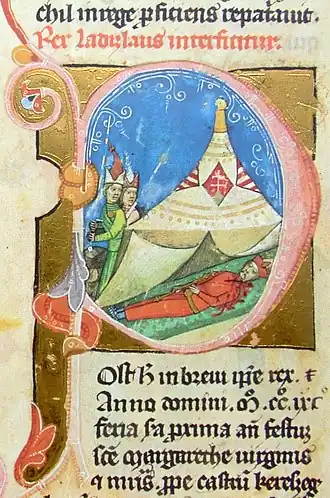 chil in rege ꝑficiens reparauit.
Rex ladizlaus interficitur.
Ost h in breui ip̄e rex. ⁊
Anno domini. M̊. cc̊. ixc̊
feria sa prima an̄ festum
sc̄e Margarethe uirginis
ꝓpe castrū kereszeg